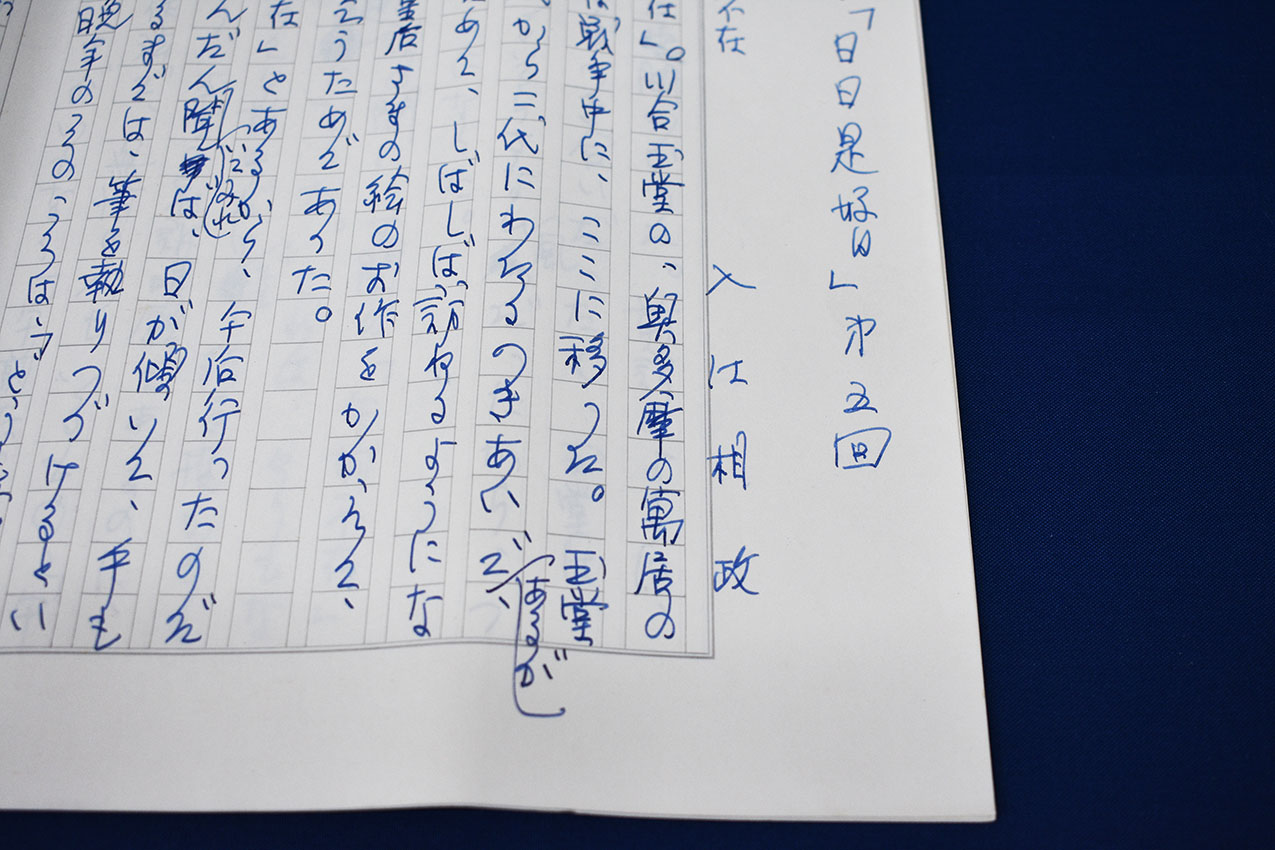 「日日是好日」第五回
不在 入江相政
在」。川合玉堂の、奥多摩の寓居の
戦争中に、ここに移つた。玉堂
から二代にわたるつきあいで、あるが
しばしば訪ねるようにな
さまの絵のお作をかかえて、
うためであつた。
在」とあるから、午后行つたのだ
んだん降 ば、日が傾いて、手も
るまでは、筆を執りつづけるとい
晩年の ころは、